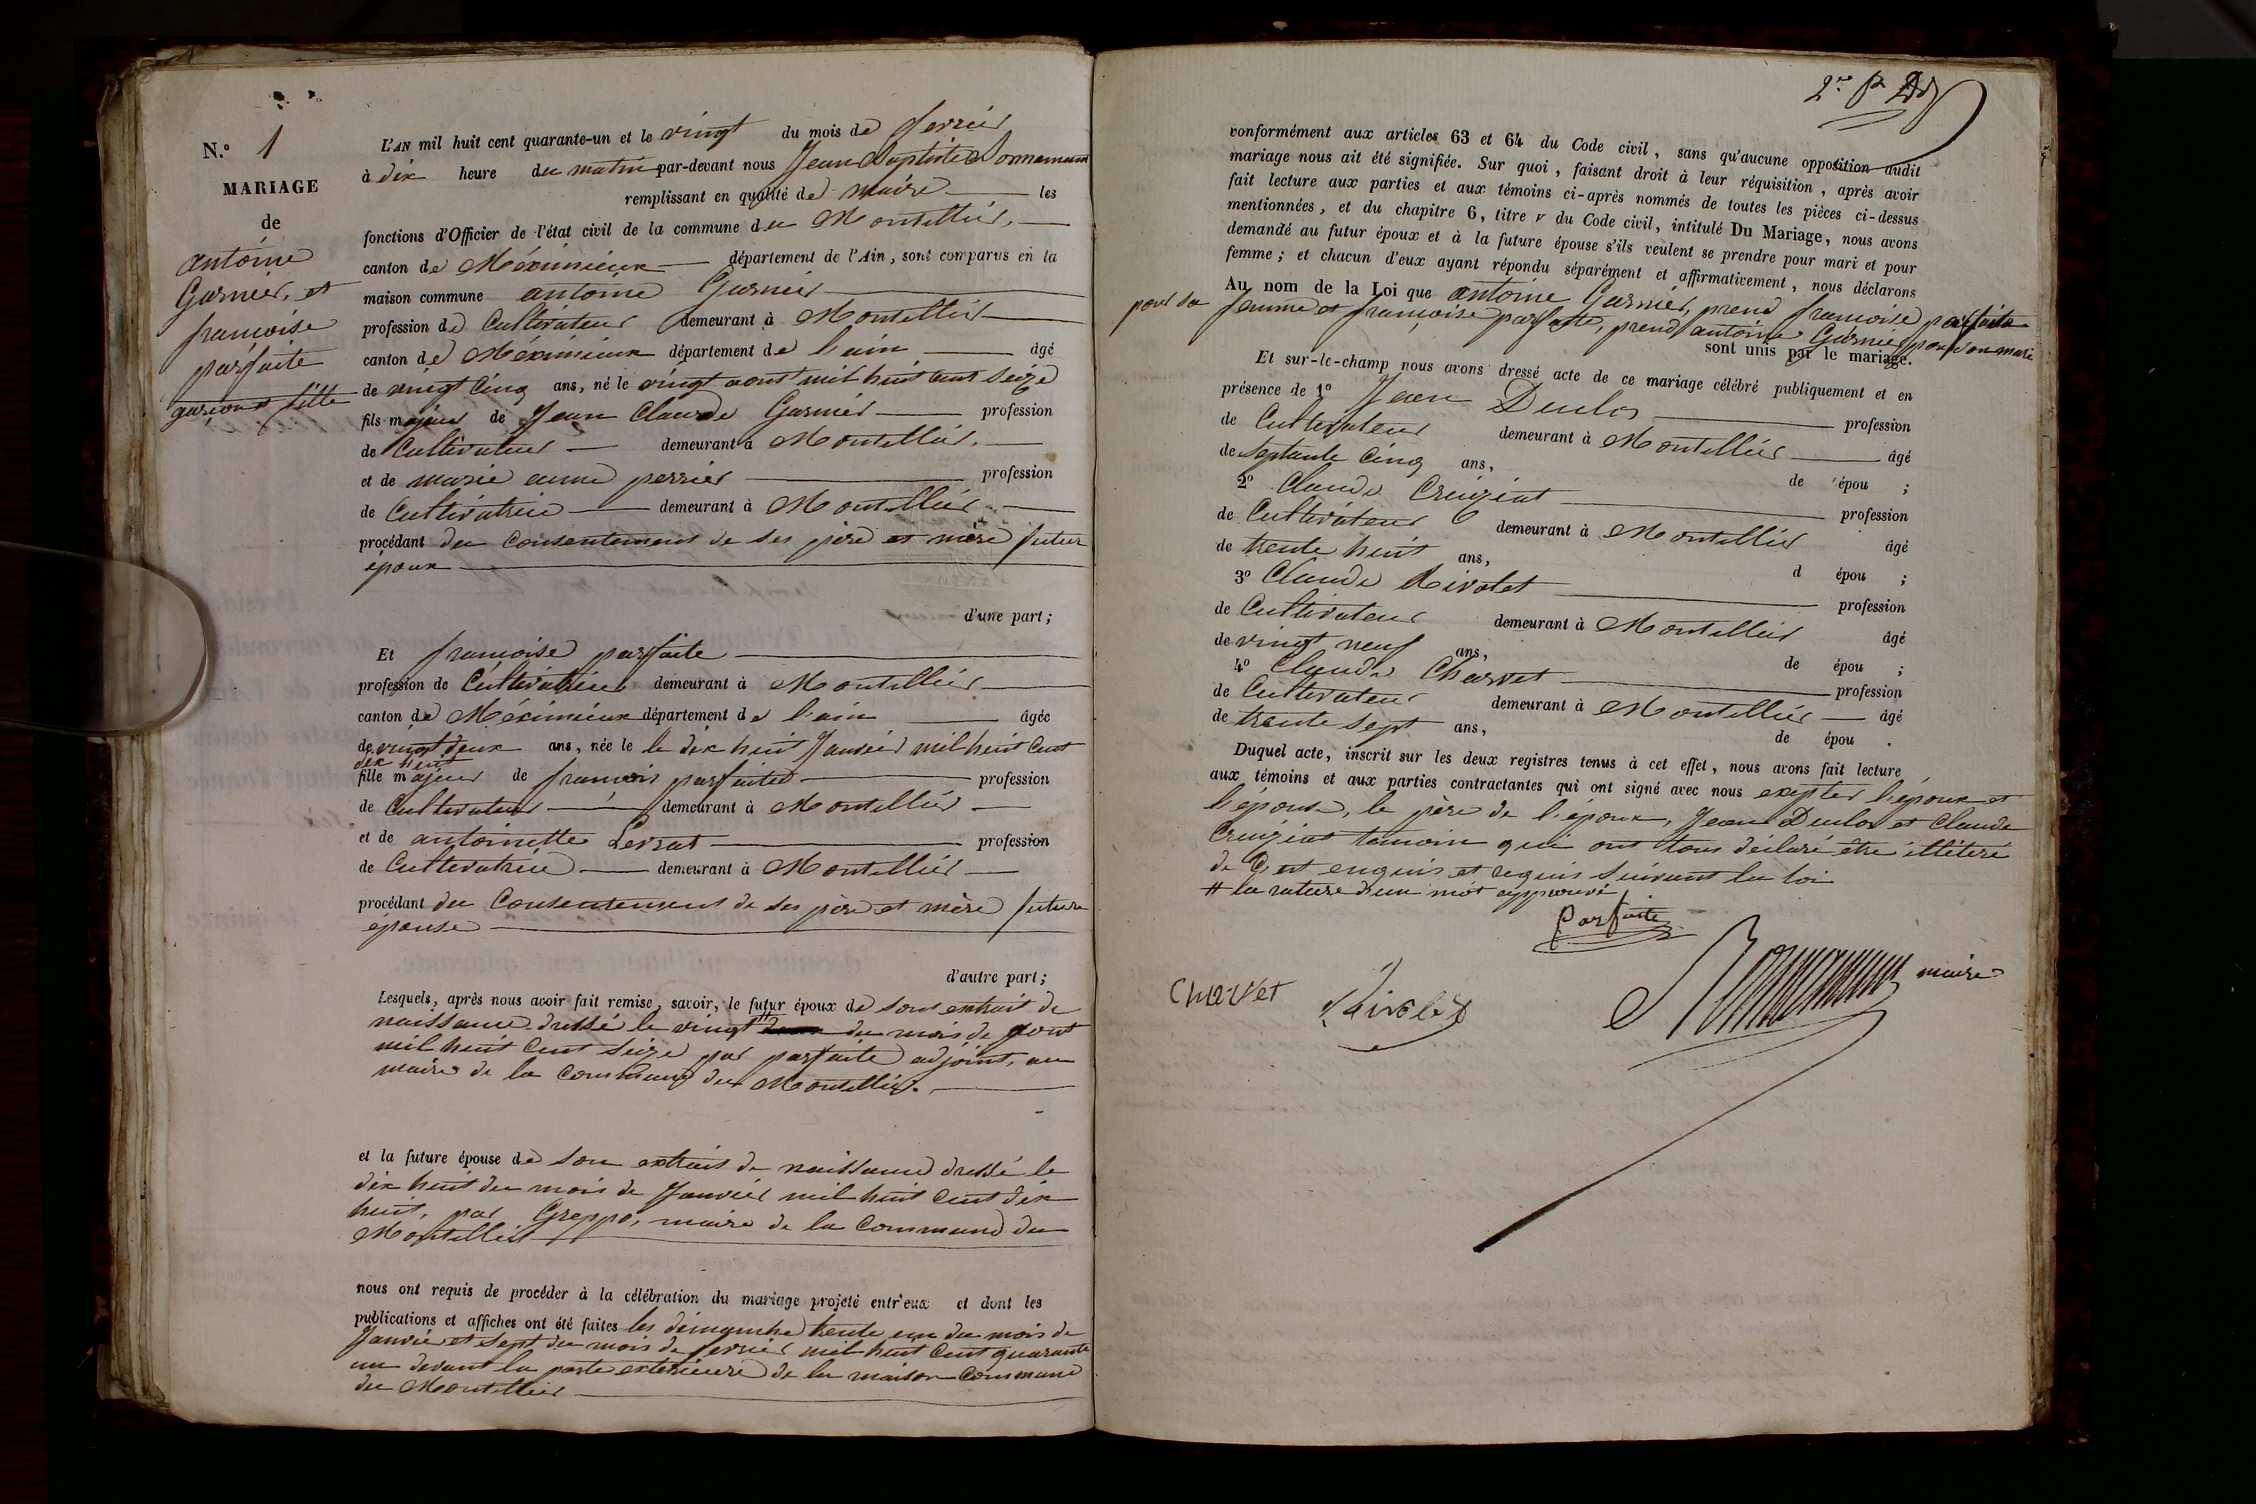 N.° 1
MARIAGE
de
antoine
Garnier, et
francoise
parfaite
garçon et fille
L'AN mil huit cent quarante-un et le vingt du mois de fevrier
à dix heure du matin par-devant nous Jean Baptiste Bonnamour
remplissant en qualité de maire les
fonctions d'Officier de l'état civil de la commune du Montellier,
canton de Méximieux département de l'Ain, sont comparus en la
maison commune antoine Garnier
profession de Cultivateur demeurant à Montellier
canton de Méximieux département de l'ain âgé
de vingt cinq ans, né le vingt aout mil huit cent seize
fils majeur de Jean Claude Garnier profession
de Cultivateur demeurant à Montellier.
et de marie anne perrier profession
de Cultivatrice demeurant à Montellier
procédant du Consentement de ses père et mère futur
époux
d'une part;
Et francoise parfaite
profession de Cultivatrice demeurant à Montellier
canton de Méximieux département de l'ain âgée
de vingt deux ans, née le le dix huit Janvier mil huit Cent
dix huit
fille majeur de francois parfaite profession
de Cultivateur demeurant à Montellier
et de antoinette Levrat profession
de Cultivatrice demeurant à Montellier
procédant du Consentement de ses père et mère future
épouse
d'autre part;
Lesquels, après nous avoir fait remise, savoir, le futur époux de son extrait de
naissance dressé le vingt # du mois de aout
mil huit Cent seize par parfaite adjoint, au
maire de la Commune du Montellier.
et la future épouse de son extrait de naissance dressé le
dix huit du mois de Janvier mil huit Cent dix
huit, par Greppo, maire de la Commune du
Montellier
nous ont requis de procéder à la célébration du mariage projeté entr'eux et dont les
publications et affiches ont été faites les dimanche trente un du mois de
Janvier et sept du mois de fevrier mil huit Cent quarante
un devant la porte exterieure de la maison Commune
du Montellier
conformément aux articles 63 et 64 du Code civil, sans qu'aucune opposition audit
mariage nous ait été signifiée. Sur quoi, faisant droit à leur réquisition, après avoir
fait lecture aux parties et aux témoins ci-après nommés de toutes les pièces ci-dessus
mentionnées, et du chapitre 6, titre v du Code civil, intitulé Du Mariage, nous avons
demandé au futur époux et à la future épouse s'ils veulent se prendre pour mari et pour
femme; et chacun d'eux ayant répondu séparément et affirmativement, nous déclarons
Au nom de la Loi que antoine Garnier, prend francoise parfaite
pour sa femme et françoise parfaite, prend antoine Garnier pour son mari
sont unis par le mariage.
Et sur-le-champ nous avons dressé acte de ce mariage célébré publiquement et en
présence de 1° Jean Duclos profession
de Cultivateur demeurant à Montellier âgé
de septante Cinq ans, de épou ;
2° Claude Cruiziat profession
de Cultivateur demeurant à Montellier âgé
de trente huit ans, d épou ;
3° Claude Rivolet profession
de Cultivateur demeurant à Montellier âgé
de vingt neuf ans, de épou ;
4° Claude Charvet profession
de Cultivateur demeurant à Montellier âgé
de trente sept ans, de épou .
Duquel acte, inscrit sur les deux registres tenus à cet effet, nous avons fait lecture
aux témoins et aux parties contractantes qui ont signé avec nous exepter l'époux et
l'épouse, le père de l'époux, Jean Duclos et Claude
Cruiziat temoin qui ont tous déclaré être illétéré
de Ce enquis et requis suivant la loi
# la rature d'un mot approuvé
Parfaite
Charvet Rivolet Bonnamour maire